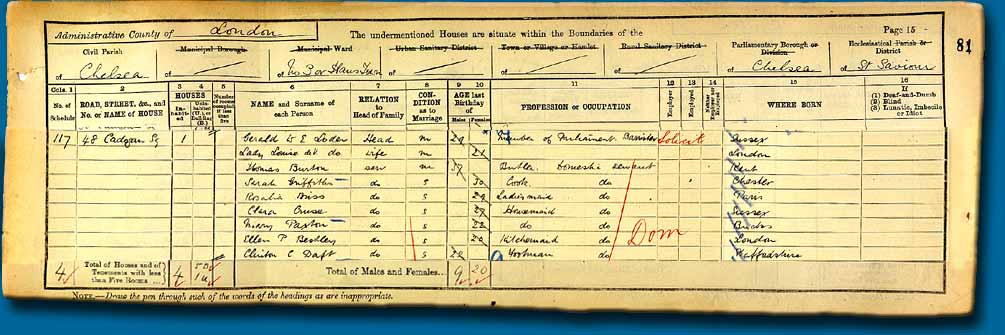 Administrative County of London
The undermentioned Houses are situate within the Boundaries of the
Page 15
81
Civil Parish of Chelsea
Municipal Borough of
Municipal Ward of No 3 or Hans Town
Urban Sanitary District of
Town or Village or Hamlet of
Rural Sanitary District of
Parliamentary Borough or Division of Chelsea
Ecclesiastical Parish or District of St Saviour
Cols. 1 2 3 4 5 6 7 8 9 10 11 12 13 14 15 16
No. of Schedule
ROAD, STREET, &c., and No. or NAME of HOUSE
HOUSES
In-habited
Uninhabited (U.), or Building (B.)
Number of rooms occupied if less than five
NAME and Surname of each Person
RELATION to Head of Family
CONDITION as to Marriage
AGE last Birthday of
Males
Females
PROFESSION or OCCUPATION
Employer
Employed
Neither Employer nor Employed
WHERE BORN
(1) Deaf-and-Dumb
(2) Blind
(3) Lunatic, Imbecile or Idiot
117 48 Cadogan Sq 1 Gerald W E Loder Head M 29 Member of Parliament Barrister Sussex
Lady Louise de V do Wife London
Thomas Burton serv M 39 Butler Domestic servant Kent
Sarah Griffiths do S 30 Cook do Chester
Rosalie do S 29 Ladiesmaid do Paris
Clara do S 27 Housemaid do Sussex
Paxton do S 22 do do
Ellen P do S 20 Kitchenmaid do London
C Daft do S Footman do Staffordshire
Dom
4 Total of Houses and of Tenements with less than Five Rooms 4
Total of Males and Females.. 9 20
NOTE.—Draw the pen through such of the words of the headings as are inappropriate.